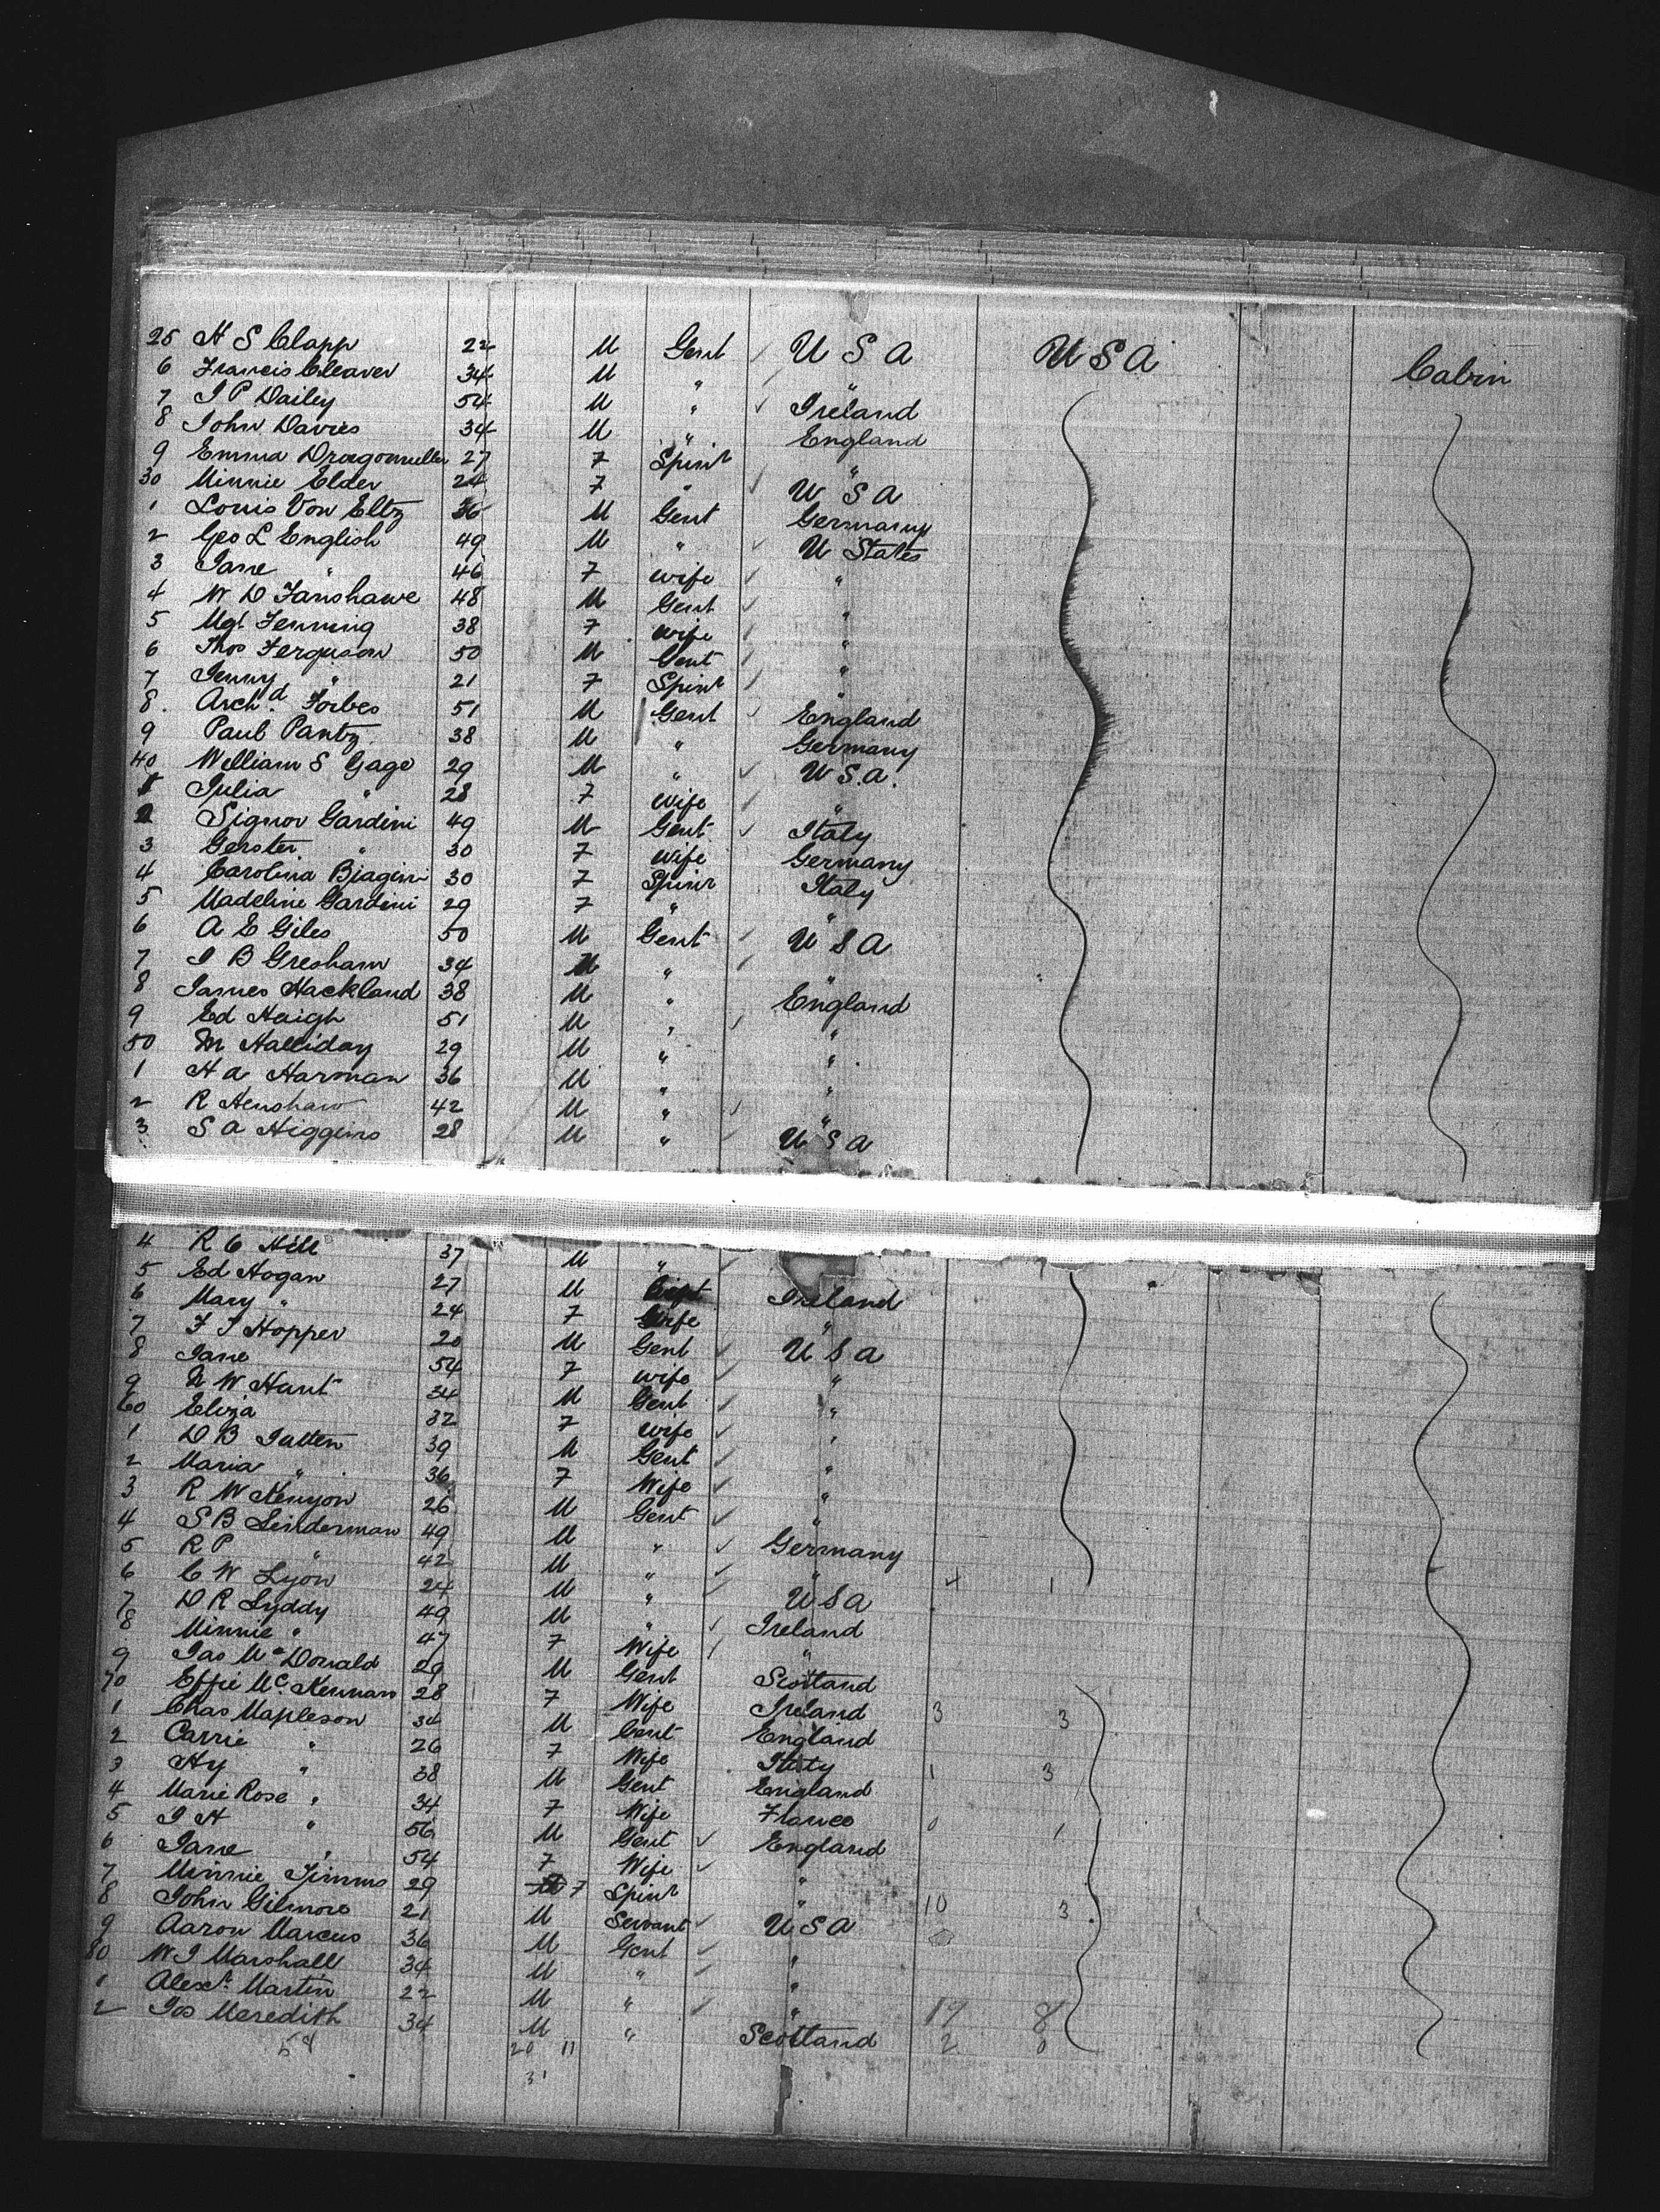 25 H S Clapp 22 M Gent U S A U S A Cabin
6 Francis Cleaver 34 M " "
7 J P Dailey 54 M " Ireland
8 John Davies 34 M " England
9 Emma Dragomuller 27 F Spinr "
30 Minnie Elder 24 F " U S A
1 Louis Von Eltz 36 M Gent Germany
2 Geo L English 49 M " U States
3 Jane " 46 F wife "
4 W D Fanshawe 48 M Gent "
5 Mgt Fenning 38 F wife "
6 Thos Ferguson 50 M Gent "
7 Jenny " 21 F Spinr "
8 Archd Forbes 51 M Gent England
9 Paul Pantz 38 M " Germany
40 William S Gage 29 M " U.S.A.
1 Julia " 28 F wife "
2 Signor Gardini 49 M Gent Italy
3 Gerster " 30 F wife Germany
4 Carolina Biagini 30 F Spinr Italy
5 Madeline Gardini 29 F " "
6 A E Giles 50 M Gent U S A
7 J B Gresham 34 M " "
8 James Hackland 38 M " England
9 Ed Haigh 51 M " "
50 M Halliday 29 M " "
1 H A Harman 36 M " "
2 R Henshaw 42 M " "
3 S A Higgins 28 M " U S A
4 R C Hill 37 M "
5 Ed Hogan 27 M Ireland
6 Mary " 24 F Wife "
7 F J Hopper 20 M Gent U S A
8 Jane 54 F wife "
9 W Hunt 34 M Gent "
60 Eliza 32 F wife "
1 D B Tatten 39 M Gent "
2 Maria " 36 F Wife "
3 R W Kenyon 26 M Gent "
4 S B Linderman 49 M " Germany
5 R P " 42 M " "
6 C W Lyon 24 M " U S A 4 1
7 D R Lyddy 49 M " Ireland
8 Minnie " 47 F Wife "
9 Jas McDonald 29 M Gent Scotland
70 Effie McKennan 28 F Wife Ireland 3 3
1 Chas Mapleson 34 M Gent England
2 Carrie " 26 F Wife Italy 1 3
3 Hy " 38 M Gent England
4 Marie Rose " 34 F Wife France 0 1
5 J H " 56 M Gent England
6 Jane " 54 F Wife "
7 Minnie Timms 29 F Spinr " 10 3
8 John Gilmore 21 M Servant U S A
9 Aaron Marcus 36 M Gent "
80 W J Marshall 34 M " "
1 Alexr Martin 22 M " " 19 8
2 Jos Meredith 34 M " Scotland 2 0
58 20 11
31